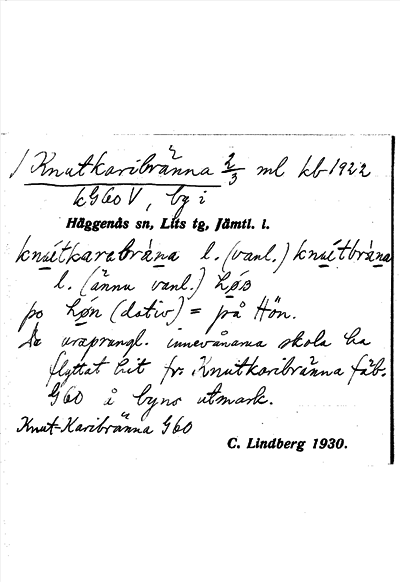 / Knutkaribränna 2/3 ml kb 1922
kG60 V, by i
Häggenås sn, Lits tg, Jämtl. l.
knuétkarabrána l. (vanl.) knuétbrána
l. (ännu vanl.) hǿɒ
po hǿn (dativ) = på Hön.
De ursprungl. innevånarna skola ha
flyttat hit fr. Knutkaribränna fäb.
G60 å byns utmark.
Knut-Karibränna G60
C. Lindberg 1930.